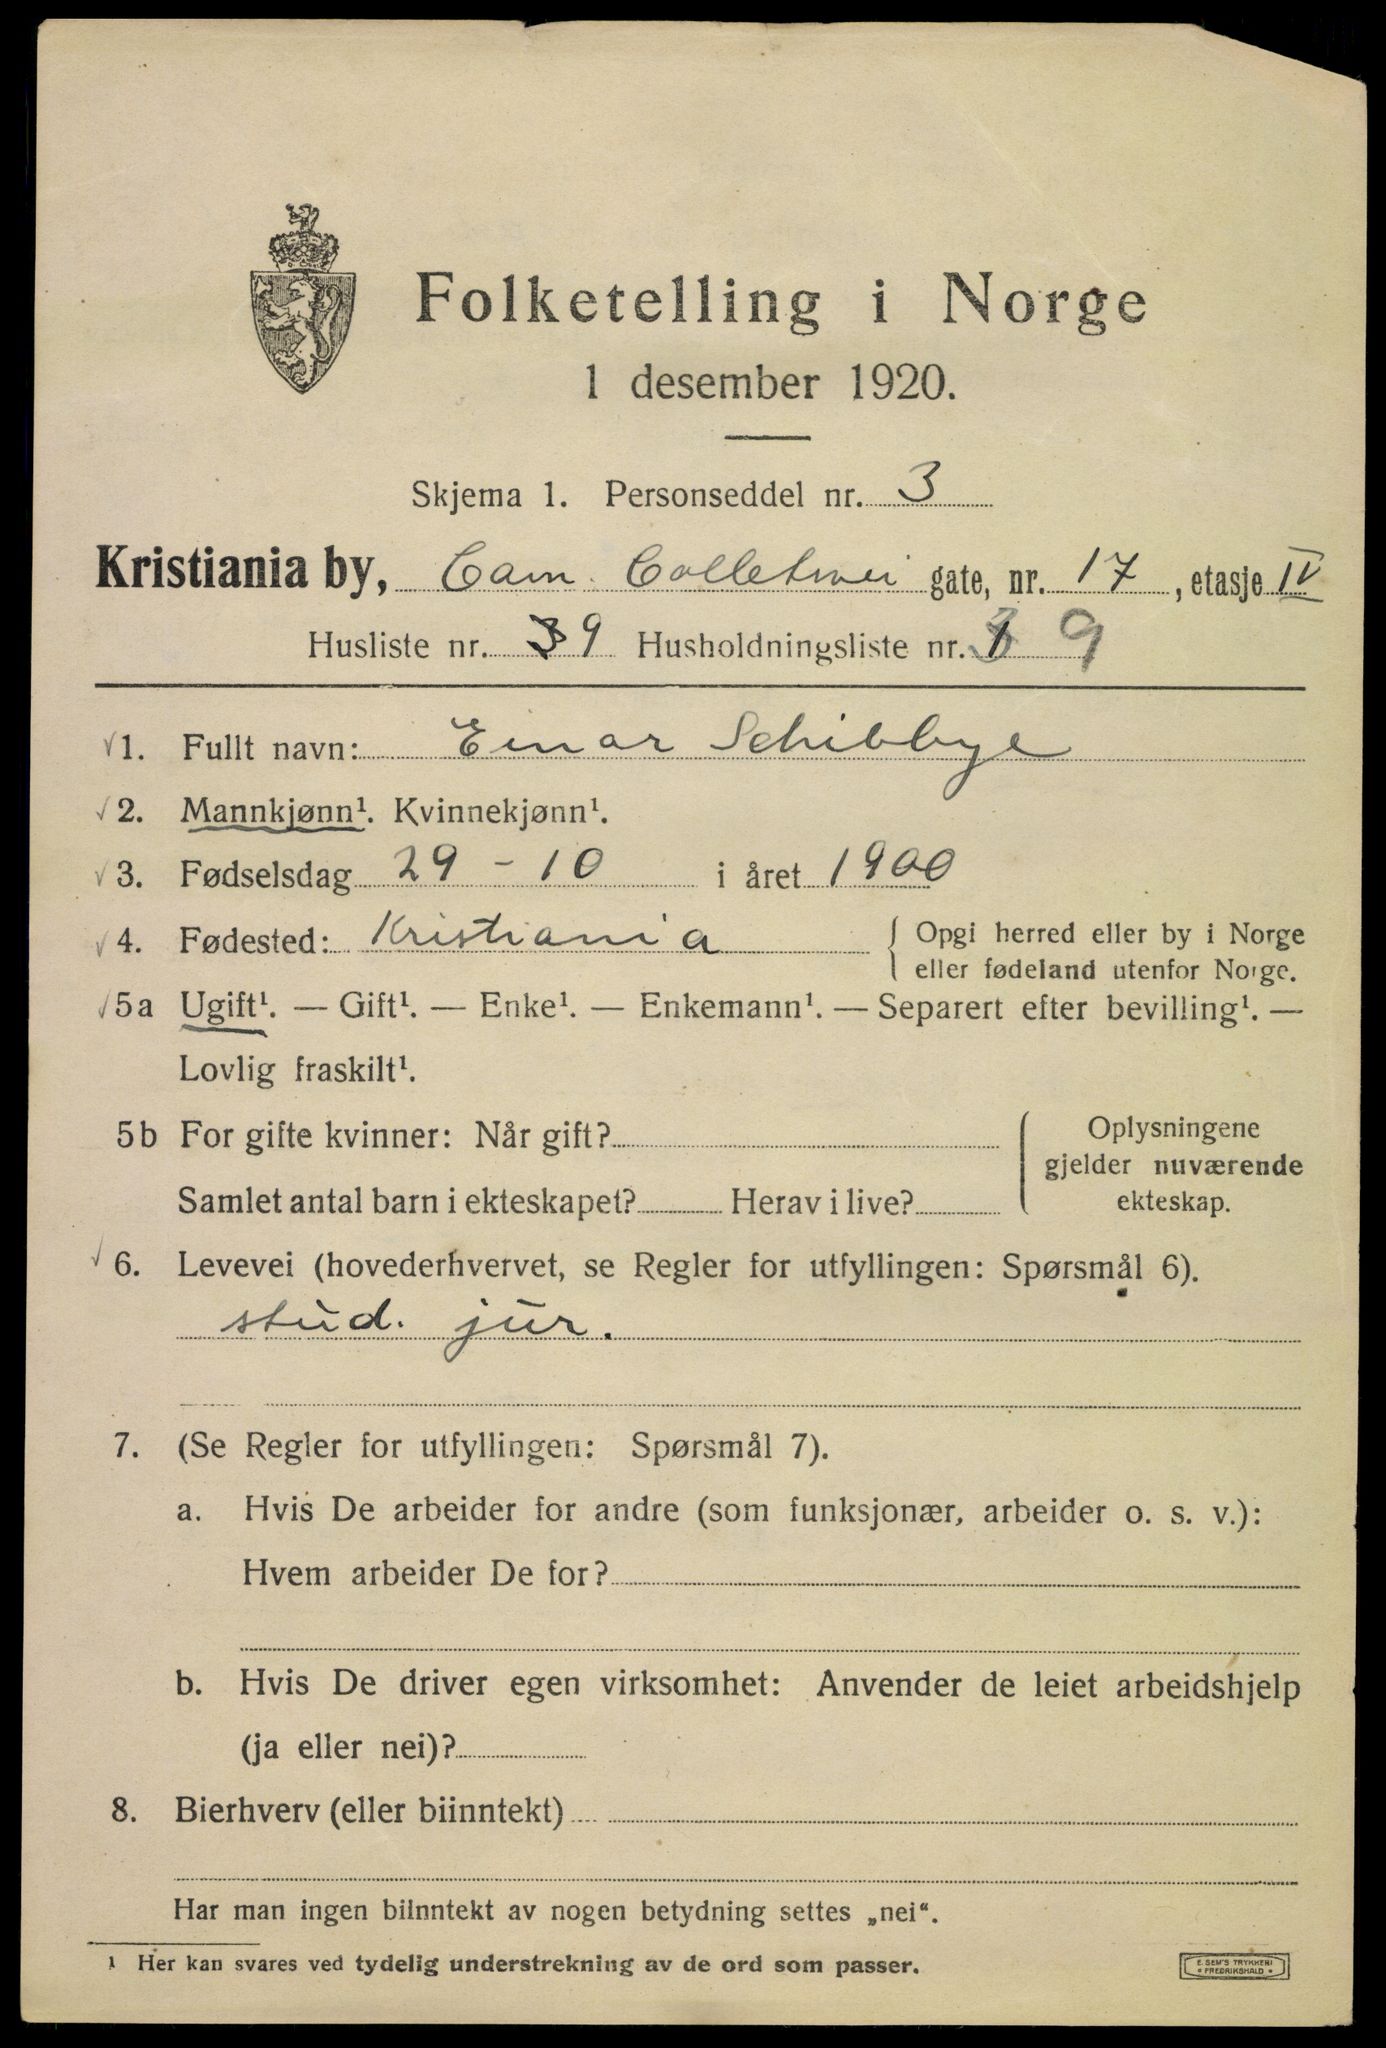 Folketelling i Norge
1 desember 1920.
Skjema 1. Personseddel nr. 3
Kristiania by, Cam. Colletsvei gate, nr. 17, etasje IV
Husliste nr. 9 Husholdningsliste nr. 9
1. Fullt navn: Einar Schibbye
2. Mannkjønn¹. Kvinnekjønn¹.
3. Fødselsdag 29 - 10 i året 1900
4. Fødested: Kristiania { Opgi herred eller by i Norge
eller fødeland utenfor Norge.
5a Ugift¹. — Gift¹. — Enke¹. — Enkemann¹. — Separert efter bevilling¹. —
Lovlig fraskilt¹.
5b For gifte kvinner: Når gift?
Samlet antal barn i ekteskapet? Herav i live?
Oplysningene
gjelder nuværende
ekteskap.
6. Levevei (hovederhvervet, se Regler for utfyllingen: Spørsmål 6).
stud. jur.
7. (Se Regler for utfyllingen: Spørsmål 7).
a. Hvis De arbeider for andre (som funksjonær, arbeider o. s. v.):
Hvem arbeider De for?
b. Hvis De driver egen virksomhet: Anvender de leiet arbeidshjelp
(ja eller nei)?
8. Bierhverv (eller biinntekt)
Har man ingen biinntekt av nogen betydning settes „nei“.
1 Her kan svares ved tydelig understrekning av de ord som passer.
E. SEM'S TRYKKERI
* FREDRIKSHALD *